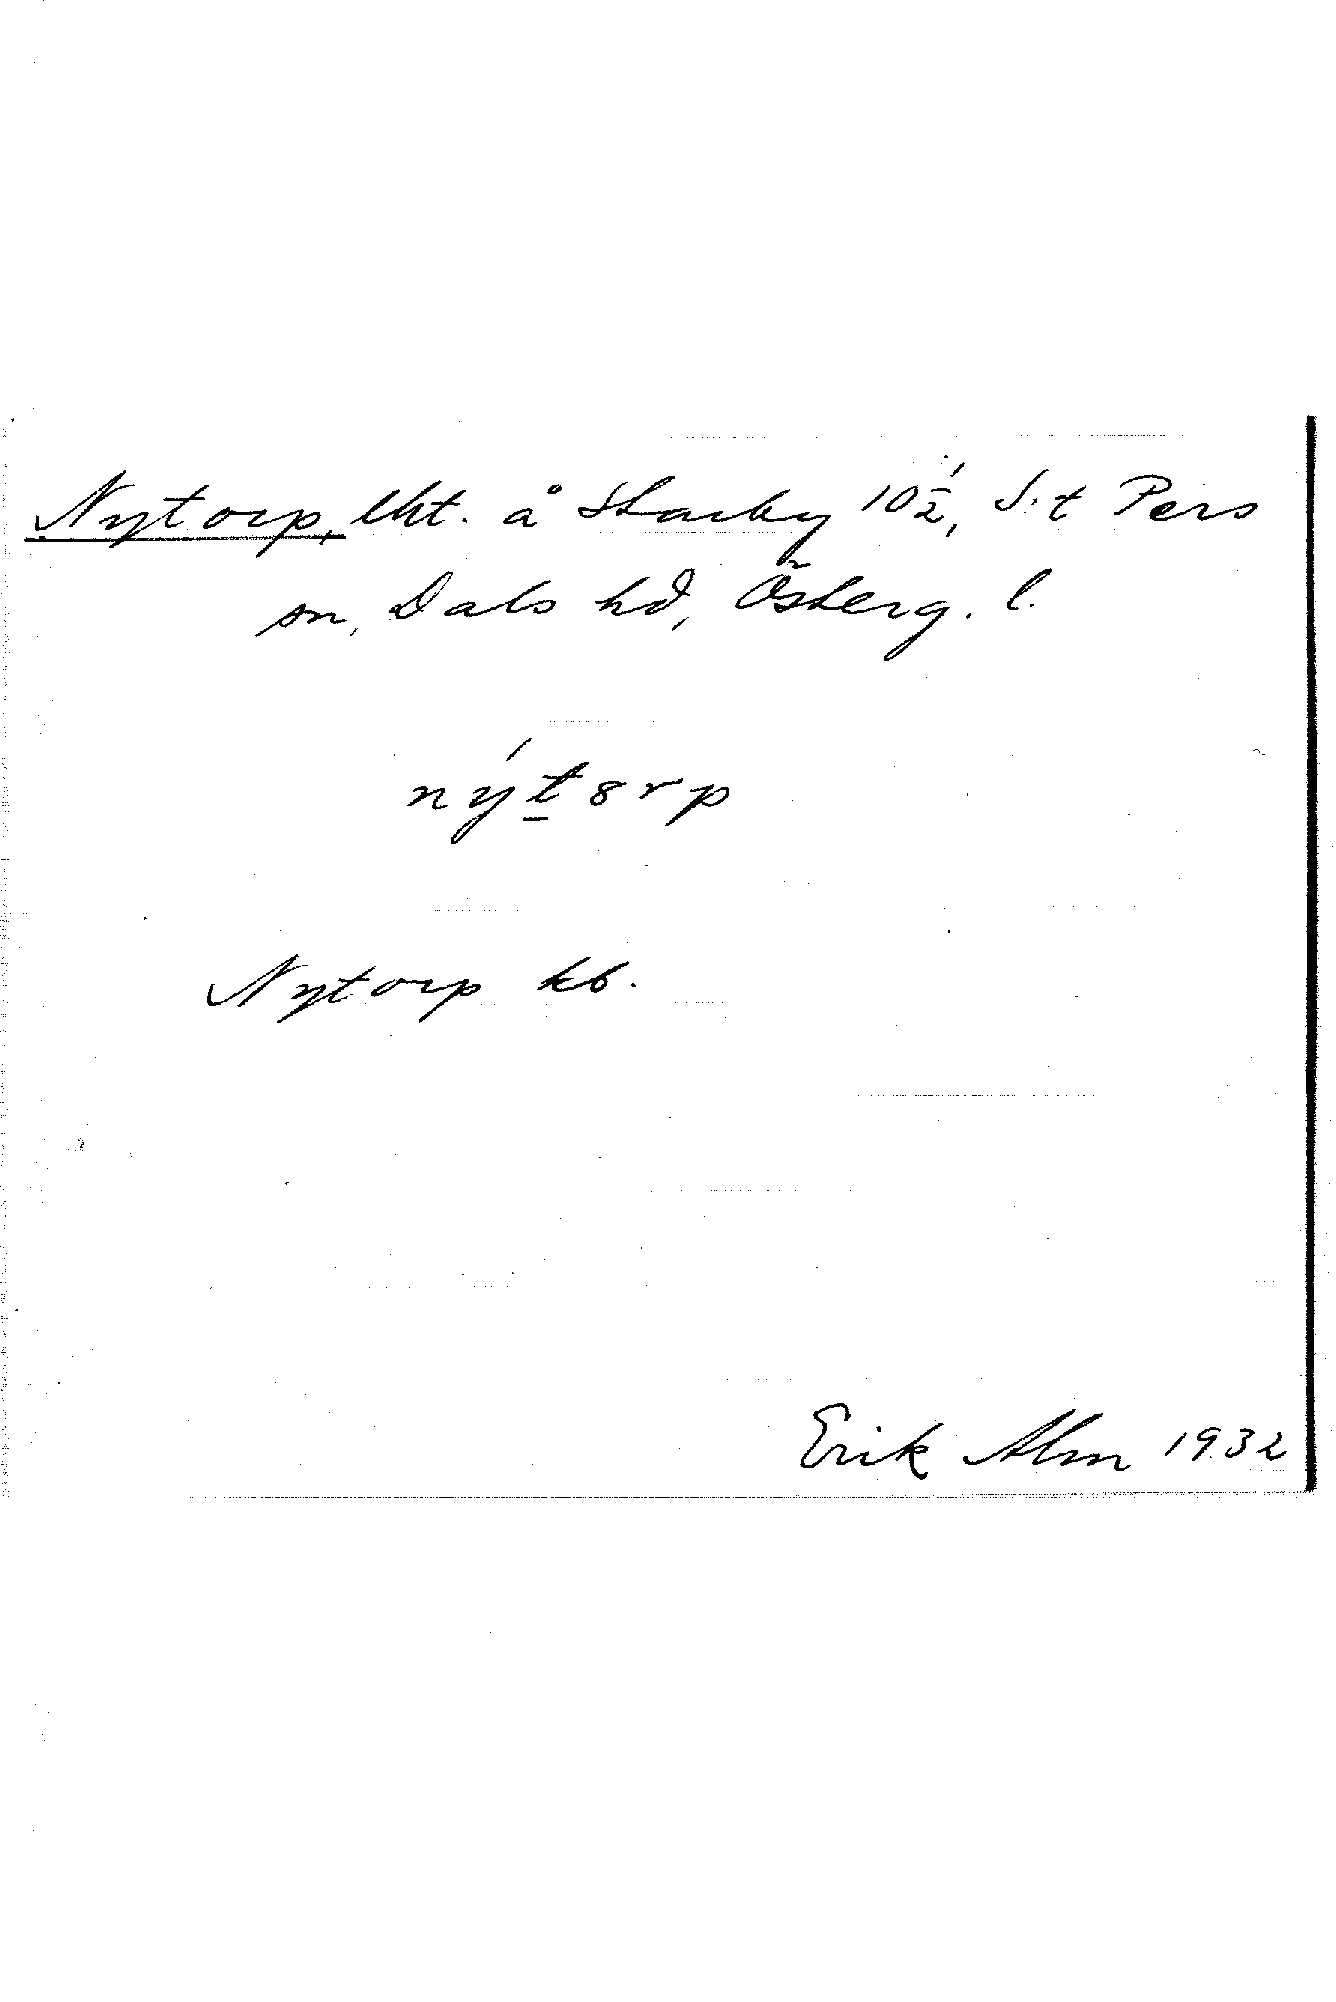 Nytorp, lht. å Starby 10½, S:t Pers
sn, Dals hd, Österg. l.
nýt8rp
Nytorp kb.
Erik Alm 1932